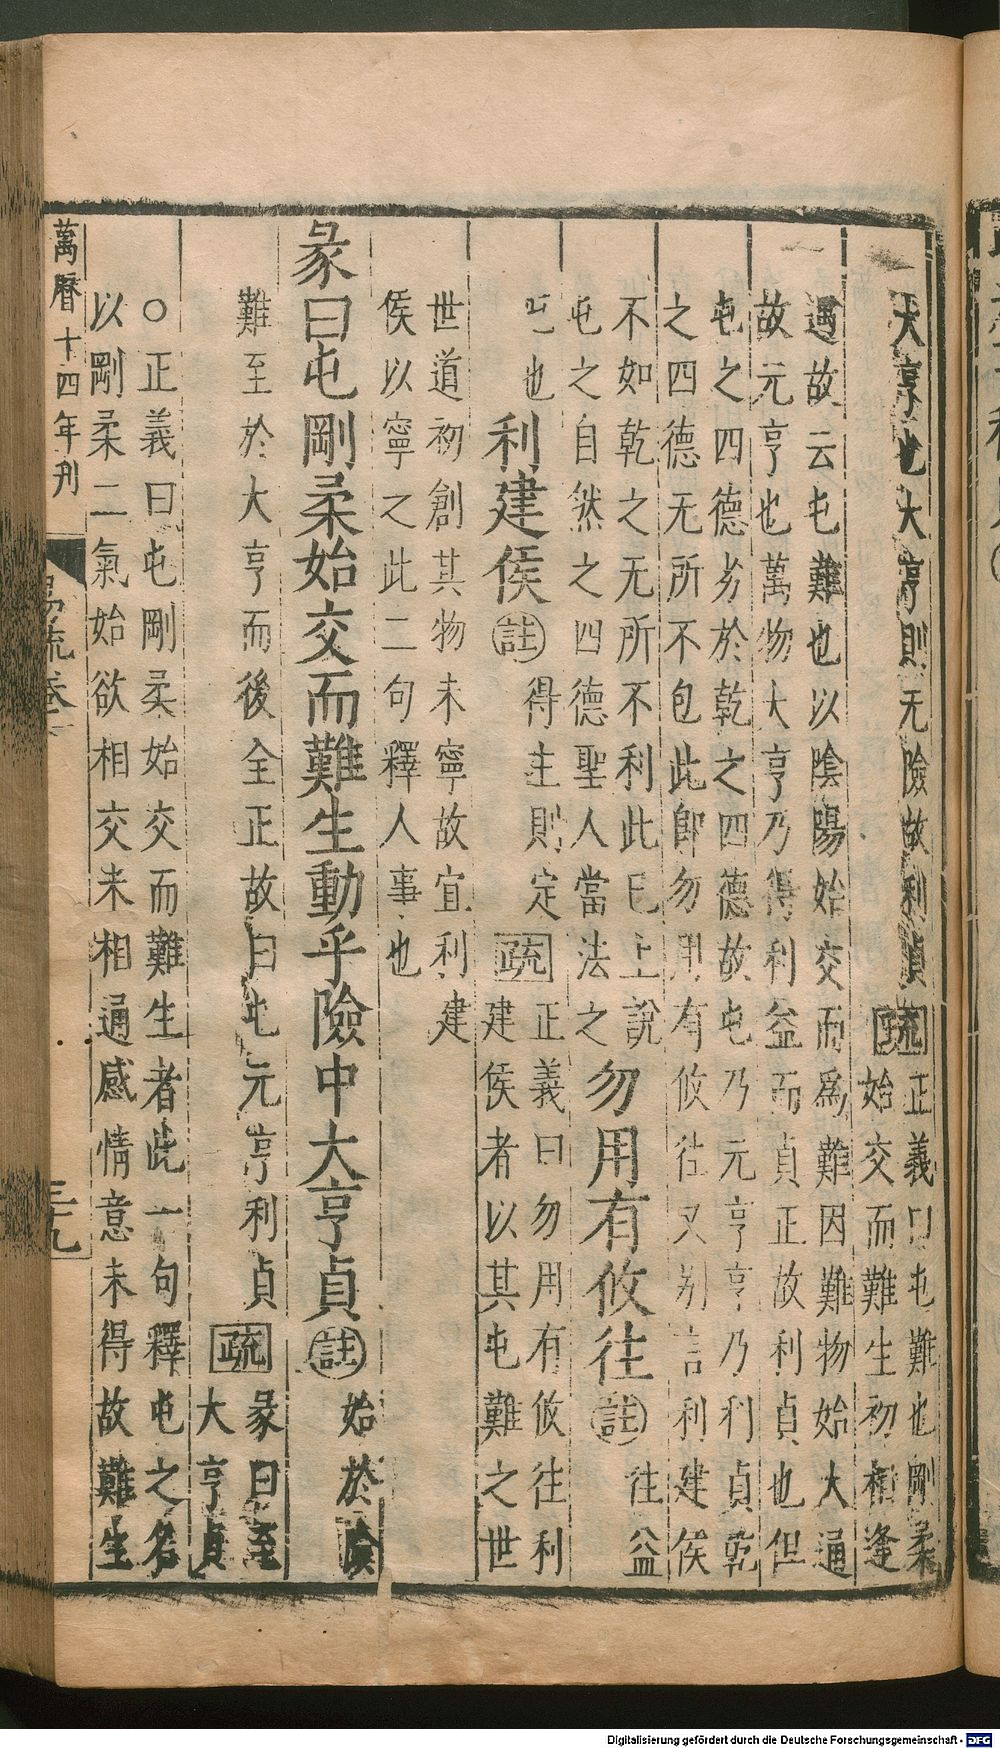 大亨也大亨則无險故利貞疏正義曰屯難也剛柔
始交而難生初相逢
遇故云屯難也以陰陽始交而爲難因難物始大通
故元亨也萬物大亨乃得利益而貞正故利貞也但
屯之四德劣於乾之四德故屯乃元亨亨乃利貞乾
之四德无所不包此即勿用有攸往又别言利建侯
不如乾之无所不利此已上說
屯之自然之四德聖人當法之
勿用有攸往註往益
屯也
利建侯註得主則定疏正義曰勿用有攸往利
建侯者以其屯難之世
世道初創其物未寧故宜利建
侯以寧之此二句釋人事也
彖曰屯剛柔始交而難生動乎險中大亨貞註始於險
難至於大亨而後全正故曰屯元亨利貞疏彖曰至
大亨貞
○正義曰屯剛柔始交而難生者此一句釋屯之名
以剛柔二氣始欲相交未相通感情意未得故難生
萬曆十四年刋
易疏卷一
三十九
Digitalisierung gefördert durch die Deutsche Forschungsgemeinschaft - DFG